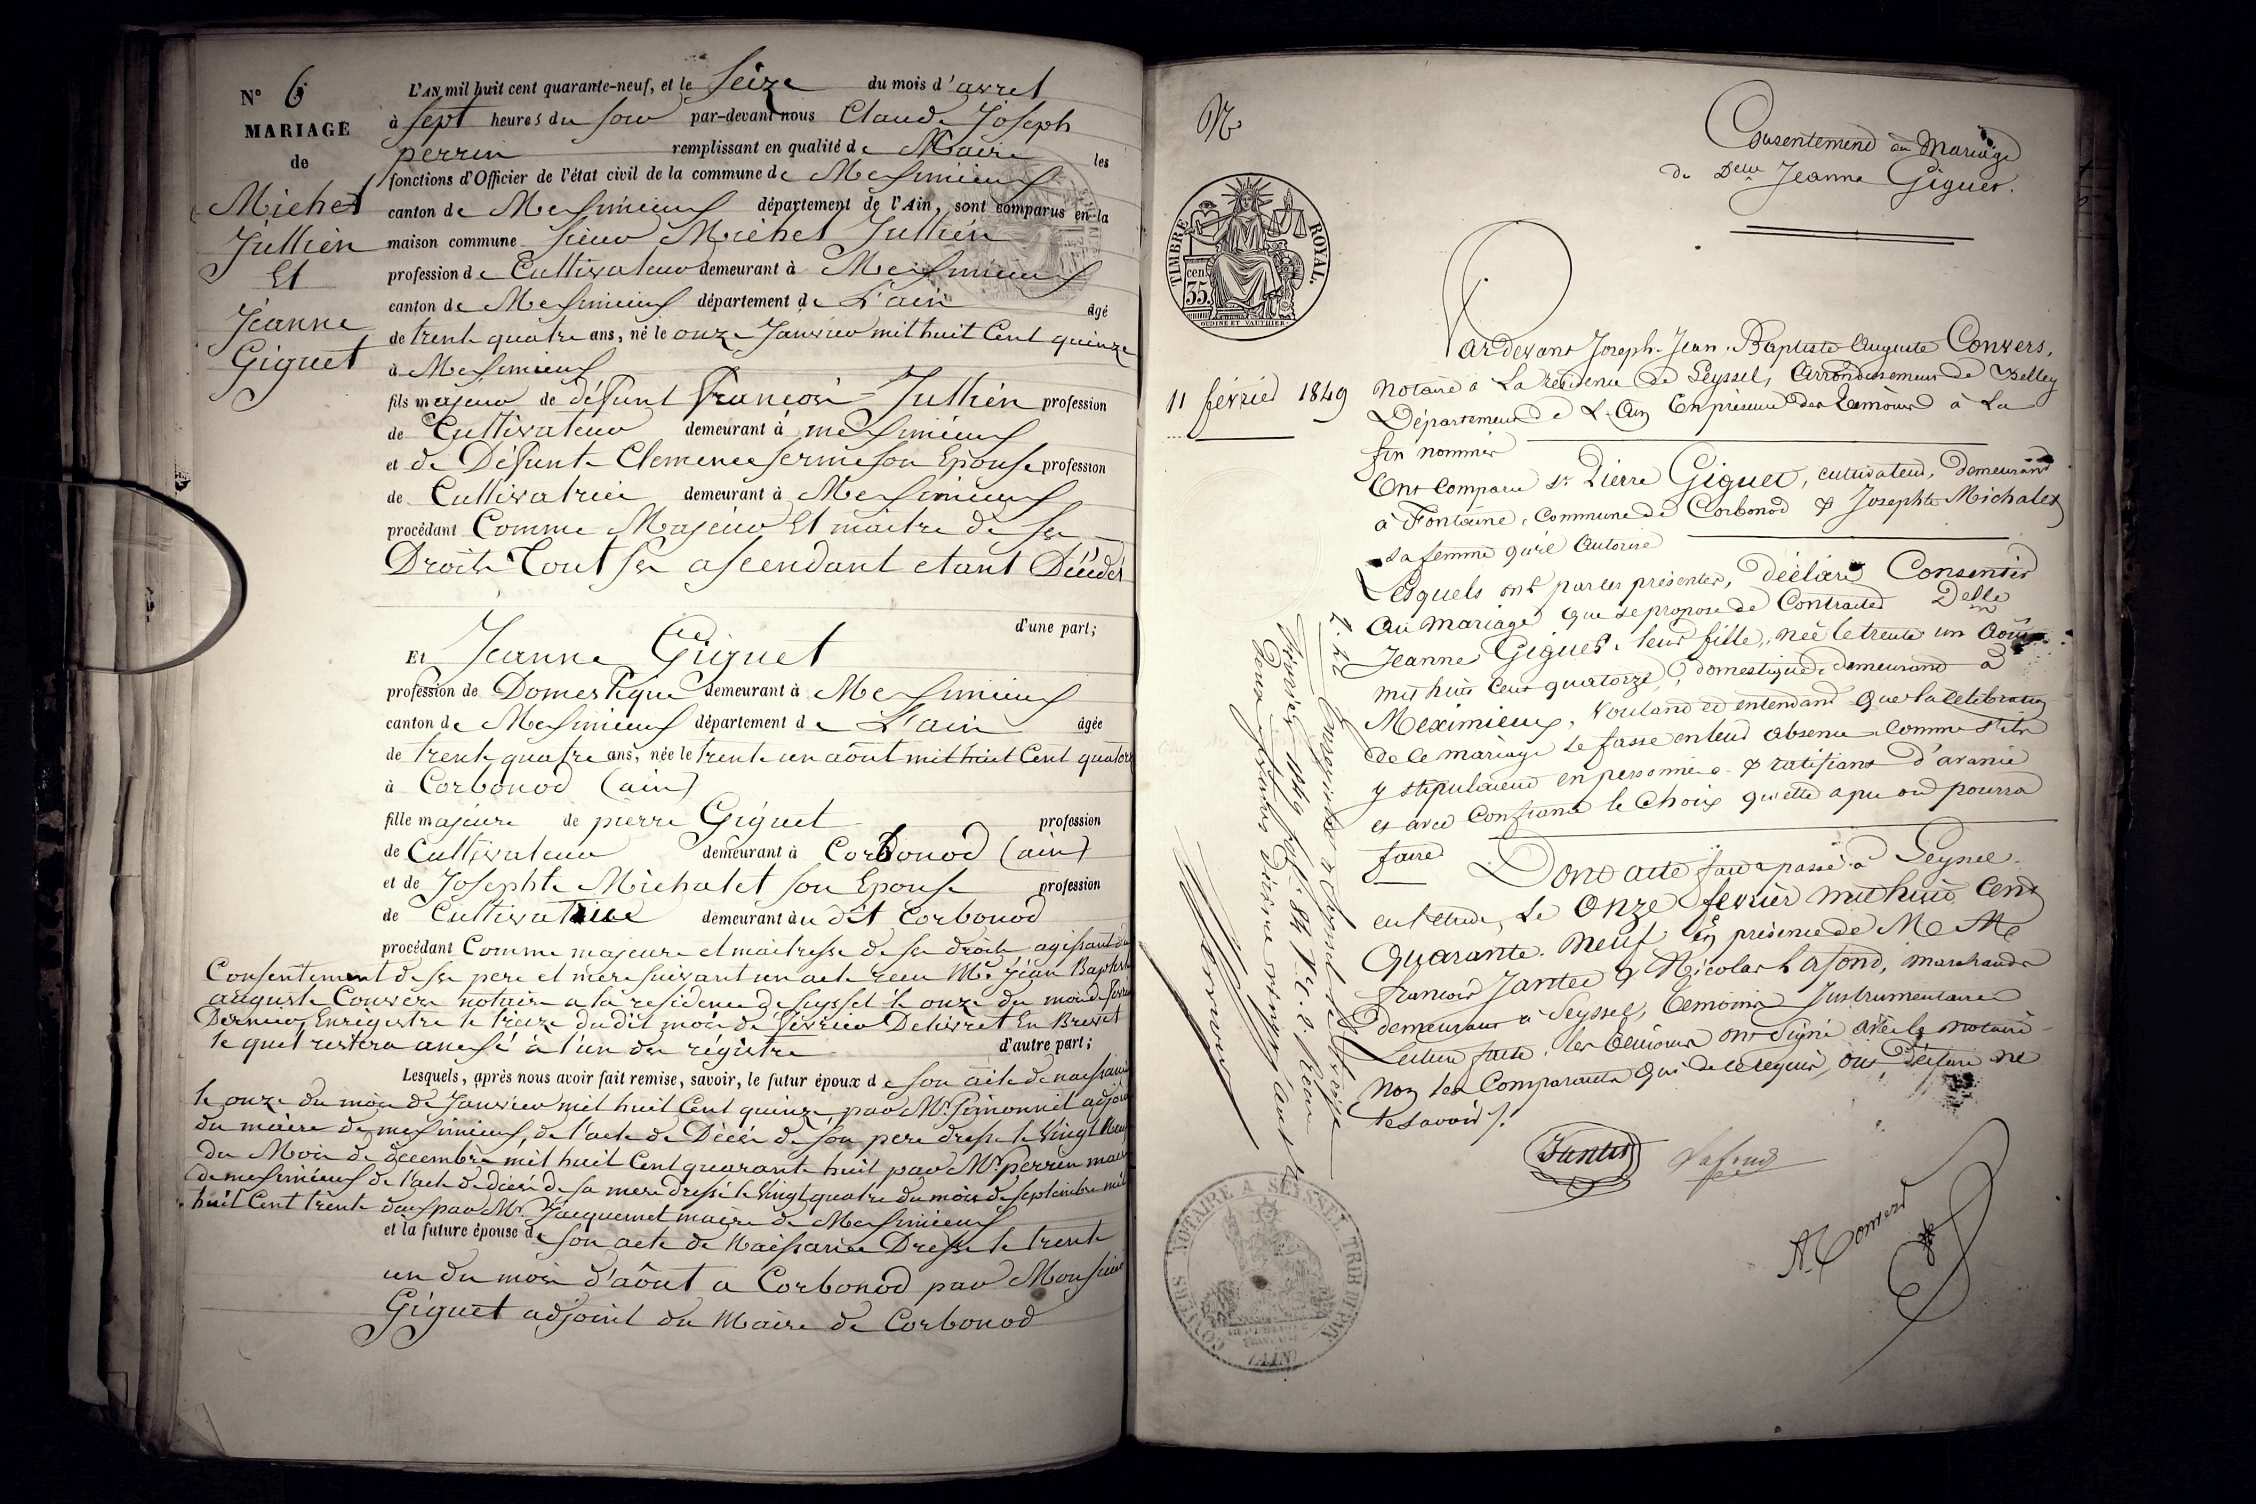 N° 6
MARIAGE
de
Michel
Jullien
Et
Jeanne
Giguet
L'AN mil huit cent quarante-neuf, et le Seize du mois d'avril
à sept heures du soir par-devant nous Claude Joseph
perrin remplissant en qualité de Maire les
fonctions d'Officier de l'état civil de la commune de Meximieux
canton de Meximieux département de l'Ain, sont comparus en la
maison commune sieur Michel Jullien
profession de Cultivateur demeurant à Meximieux
canton de Meximieux département de L'ain âgé
de trente quatre ans, né le onze Janvier mil huit Cent quinze
à Meximieux
fils majeur de défunt françois Jullien profession
de Cultivateur demeurant à meximieux
et de Défunte Clemence serme son Epouse profession
de Cultivatrice demeurant à Meximieux
procédant Comme Majeur Et maitre de ses
Droits Tout ses ascendant etant Décédés
d'une part;
Et Jeanne Giguet
profession de Domestique demeurant à Meximieux
canton de Meximieux département de L'ain âgée
de trente quatre ans, née le trente un août mil huit Cent quatorze
à Corbonod (ain)
fille majeure de pierre Giguet profession
de Cultivateur demeurant à Corbonod (ain)
et de Josephte Michalet son Epouse profession
de Cultivatrice demeurant àu dit Corbonod
procédant Comme majeure et maitresse de ses droits agissant du
Consentement de ses pere et mere suivant un acte recu Me Jéan Baptiste
auguste Convers notaire a la residence de seyssel le onze du mois de fevrier
Dernier, Enregistre le treize du dit mois de fevrier Delivret En Brevet
le quel restera anexé à l'un des régistre d'autre part;
Lesquels, après nous avoir fait remise, savoir, le futur époux de son acte de naissance
le onze du mois de Janvier mil huit Cent quinze par Mr adjoint
du maire de meximieux, de l'acte de Décès de son pere dressé le Vingt Neuf
du Mois de decembre mil huit Cent quarante huit par Mr perrin maire
de meximieux de l'acte de décès de sa mere dressé le Vingt quatre du mois de septembre mil
huit Cent trente deux par Mr Jacquemet maire de Meximieux
et la future épouse de son acte de Naissance Dressé le trente
un du mois d'août a Corbonod par Monsieur
Giguet adjoint du Maire de Corbonod
Consentement au Mariage
de Delle Jeanne Giguet.
TIMBRE ROYAL.
35 cen
OUDINÉ ET VAUTHIER
11 février 1849
Pardevant Joseph-Jean-Baptiste Auguste Convers,
Notaire à La résidence de Seyssel, Arrondissement de Belley
Département de L'Ain En présence des témoins à La
fin nommés
Ont Comparu Sr Pierre Giguet, cultivateur, Demeurant
à Fontaine, Commune de Corbonod & Josephte Michalet
sa femme qu'il Autorise
Lesquels ont par les présentes, Déclaré Consentir
Au Mariage que se propose de Contracter Delle
Jeanne Giguet, leur fille, née le trente un Août
mil huit Cent quatorze, domestique, demeurant à
Meximieux, Voulant et entendant que la Célébration
de ce mariage se fasse en leur absence comme s'ils
y stipulaient en personnes & ratifiant d'avance
et avec Confiance le Choix qu'elle a pu ou pourra
faire
Dont acte fait & passé à Seyssel
en l'étude, Le Onze février mil huit Cent
Quarante Neuf En présence de M. M.
François Jantet & Nicolas Lafond, marchands
demeurant à Seyssel, témoins Instrumentaires
Lecture faite. les témoins ont Signé avec le notaire
Non les Comparants Qui de ce requis, ont Déclaré ne
le savoir /.
Jantet Lafond
A. Convers
CONVERS NOTAIRE A SEYSSEL TRIB
(AIN)